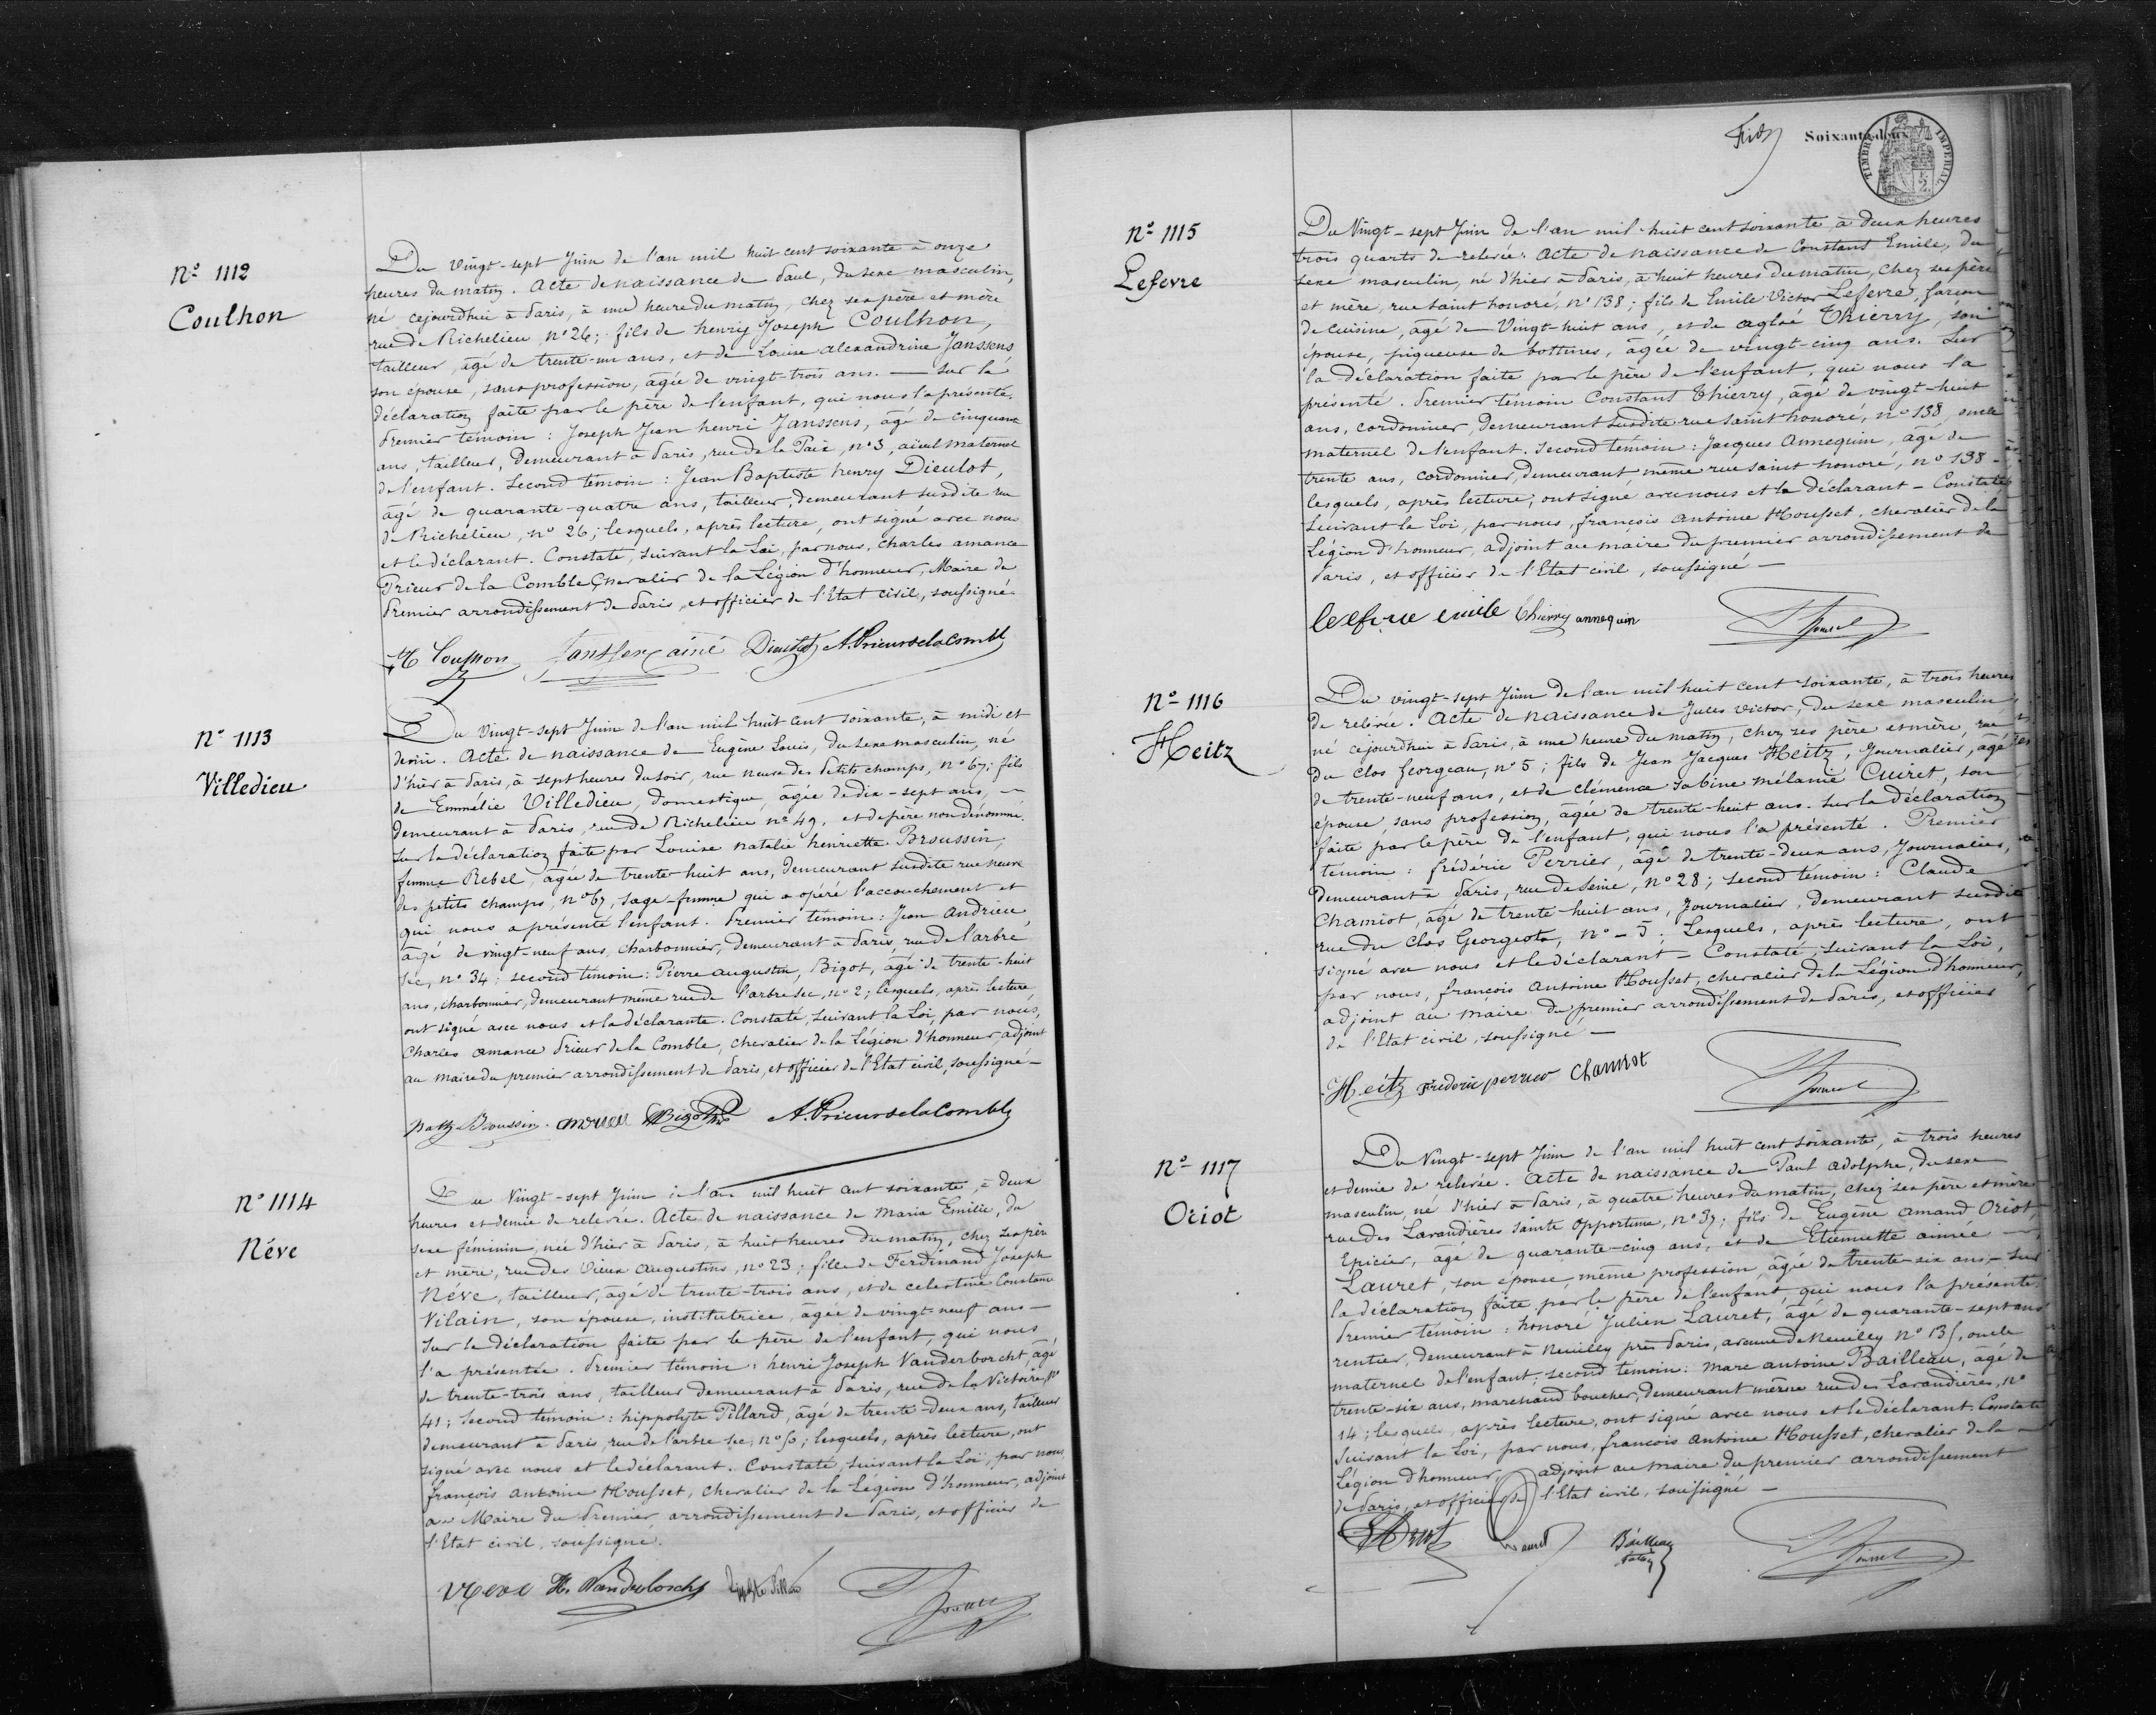 N° 1112
Coulhon
Du vingt-sept Juin de l'an mil huit cent soixante à onze
heures du matin. Acte de naissance de Paul, du sexe masculin,
né cejourdhui à Paris, à une heure du matin, chez ses père et mère
rue de Richelieu n° 26; fils de henry Joseph Coulhon,
tailleur, âgé de trente-un ans, et de Louise alexandrine Janssens
son épouse, sans profession, âgée de vingt-trois ans. — Sur la
déclaration faite par le père de l'enfant, qui nous l'a présenté.
Premier témoin : Joseph Jean henri Janssens, âgé de cinquante
ans, tailleur, demeurant à Paris, rue de la Paix, n° 3, aïeul maternel
de l'enfant. Second témoin : Jean Baptiste henry Dieulot,
âgé de quarante-quatre ans, tailleur, demeurant susdite rue
de Richelieu, n° 26; lesquels, après lecture, ont signé avec nous
et le déclarant. Constaté, suivant la Loi, par nous, charles amance
Prieur de la Comble Chevalier de la Légion d'honneur, Maire du
Premier arrondissement de Paris, et officier de l'Etat civil, soussigné.
H Coulhon Janssens ainé Dieulot A. Prieur de la Comble
N° 1113
Villedieu
Du vingt-sept Juin de l'an mil huit cent soixante, à midi et
demi. Acte de naissance de Eugène Louis, du sexe masculin, né
d'hier à Paris, à sept heures du soir, rue neuve des Petits champs, n° 67; fils
de Emmélie Villedieu, domestique, âgée de dix-sept ans, —
demeurant à Paris, rue de Richelieu n° 49, et de père non dénommé.
Sur la déclaration faite par Louise natalie henriette Broussin,
femme Rebel, âgée de trente-huit ans, demeurant susdite rue neuve
des petits champs, n° 67, sage-femme qui a opéré l'accouchement et
qui nous a présenté l'enfant. Premier témoin : Jean Andrieu
âgé de vingt-neuf ans, charbonnier, demeurant à Paris, rue de l'arbre
sec, n° 34; second témoin : Pierre augustin, Bigot, âgé de trente-huit
ans, charbonnier, demeurant même rue de l'arbre sec, n° 2; lesquels, après lecture,
ont signé avec nous et la déclarante. Constaté, suivant la Loi, par nous,
Charles amance Prieur de la Comble, chevalier de la Légion d'honneur, adjoint
au maire du premier arrondissement de Paris, et officier de l'Etat civil, soussigné —
Broussin. Bigot A. Prieur de la Comble
N° 1114
Néve
Du Vingt-sept Juin de l'an mil huit cent soixante, à deux
heures et demie de relevée. Acte de naissance de Maria Emilie, du
sexe féminin, née d'hier à Paris, à huit heures du matin, chez ses père
et mère, rue des Vieux Augustins, n° 23; fille de Ferdinand Joseph
Néve, tailleur, âgé de trente-trois ans, et de celestine Constance
Vilain, son épouse, institutrice, âgée de vingt-neuf ans —
Sur la déclaration faite par le père de l'enfant, qui nous
l'a présentée. Premier témoin : henri Joseph Vanderborcht, âgé
de trente-trois ans, tailleur demeurant à Paris, rue de la Victoire, n°
41; second témoin : hippolyte Pillard, âgé de trente-deux ans, tailleur
demeurant à Paris, rue de l'arbre sec, n° 50; lesquels, après lecture, ont
signé avec nous et le déclarant. Constaté, suivant la Loi, par nous
françois antoine Housset, chevalier de la Légion d'honneur, adjoint
au Maire du Premier arrondissement de Paris, et officier de
l'Etat civil, soussigné.
Neve H. Vanderborcht
Soixante-deux
TIMBRE IMPERIAL
N° 1115
Lefevre
Du Vingt-sept Juin de l'an mil huit cent soixante, à deux heures
trois quarts de relevée. Acte de naissance de Constant Emile, du
sexe masculin, né d'hier à Paris, à huit heures du matin, chez ses père
et mère, rue saint honoré, n° 138; fils de Emile Victor Lefevre, garçon
de cuisine, âgé de Vingt-huit ans, et de aglaé Thierry, son
épouse, piqueuse de bottines, âgée de vingt-cinq ans. Sur
la déclaration faite par le père de l'enfant, qui nous l'a
présenté. Premier témoin Constant Thierry, âgé de vingt-huit
ans, cordonnier, demeurant susdite rue saint honoré, n° 138, oncle
maternel de l'enfant. second témoin : Jacques Annequin, âgé de
trente ans, cordonnier, demeurant même rue saint honoré, n° 138 -
lesquels, après lecture, ont signé avec nous et le déclarant - Constaté
suivant la Loi, par nous, françois antoine Housset, chevalier de la
Légion d'honneur, adjoint au maire du premier arrondissement de
Paris, et officier de l'Etat civil, soussigné —
lefevre emile Thierry annequin
N° 1116
Heitz
Du vingt-sept Juin de l'an mil huit cent soixante, à trois heures
de relevée. Acte de naissance de Jules victor, du sexe masculin,
né cejourdhui à Paris, à une heure du matin, chez ses père et mère, rue
du clos georgeau, n° 5; fils de Jean Jacques Heitz, Journalier, âgé
de trente-neuf ans, et de clémence sabine mélanie Cuiret, son
épouse, sans profession, âgée de trente-huit ans. Sur la déclaration
faite par le père de l'enfant, qui nous l'a présenté. Premier
témoin : frédéric Perrier, âgé de trente-deux ans, Journalier,
demeurant à Paris, rue de seine, n° 28; second témoin : Claude
Chamiot, âgé de trente-huit ans, Journalier, demeurant susdite
rue du Clos Georgeot, n° - 5; Lesquels, après lecture, ont
signé avec nous et le déclarant - Constaté, suivant la Loi,
par nous, françois Antoine Housset, chevalier de la Légion d'honneur,
adjoint au maire du premier arrondissement de Paris, et officier
de l'Etat civil, soussigné —
Heitz Frederic perrier Chamiot
N° 1117
Oriot
Du Vingt-sept Juin de l'an mil huit cent soixante, à trois heures
et demie de relevée. Acte de naissance de Paul adolphe, du sexe
masculin, né d'hier à Paris, à quatre heures du matin, chez ses père et mère
rue des Lavandières sainte opportune, n° 37; fils de Eugène amand Oriot,
Epicier, âgé de quarante-cinq ans, et de Etiennette aimée —
Lauret, son épouse, même profession, âgée de trente-six ans - Sur
la déclaration faite par le père de l'enfant, qui nous l'a présenté.
Premier témoin : honoré Julien Lauret, âgé de quarante-sept ans
rentier, demeurant à Neuilly près Paris, avenue de Neuilley n° 135, oncle
maternel de l'enfant; second témoin : marc antoine Bailleau, âgé de
trente-six ans, marchand boucher, demeurant même rue des Lavandières, n°
14; lesquels, après lecture, ont signé avec nous et le déclarant. Constaté
suivant la Loi, par nous, francois Antoine Housset, chevalier de la —
Légion d'honneur, adjoint au maire du premier arrondissement
de Paris, et officier de l'Etat civil, soussigné —
Lauret Bailleau